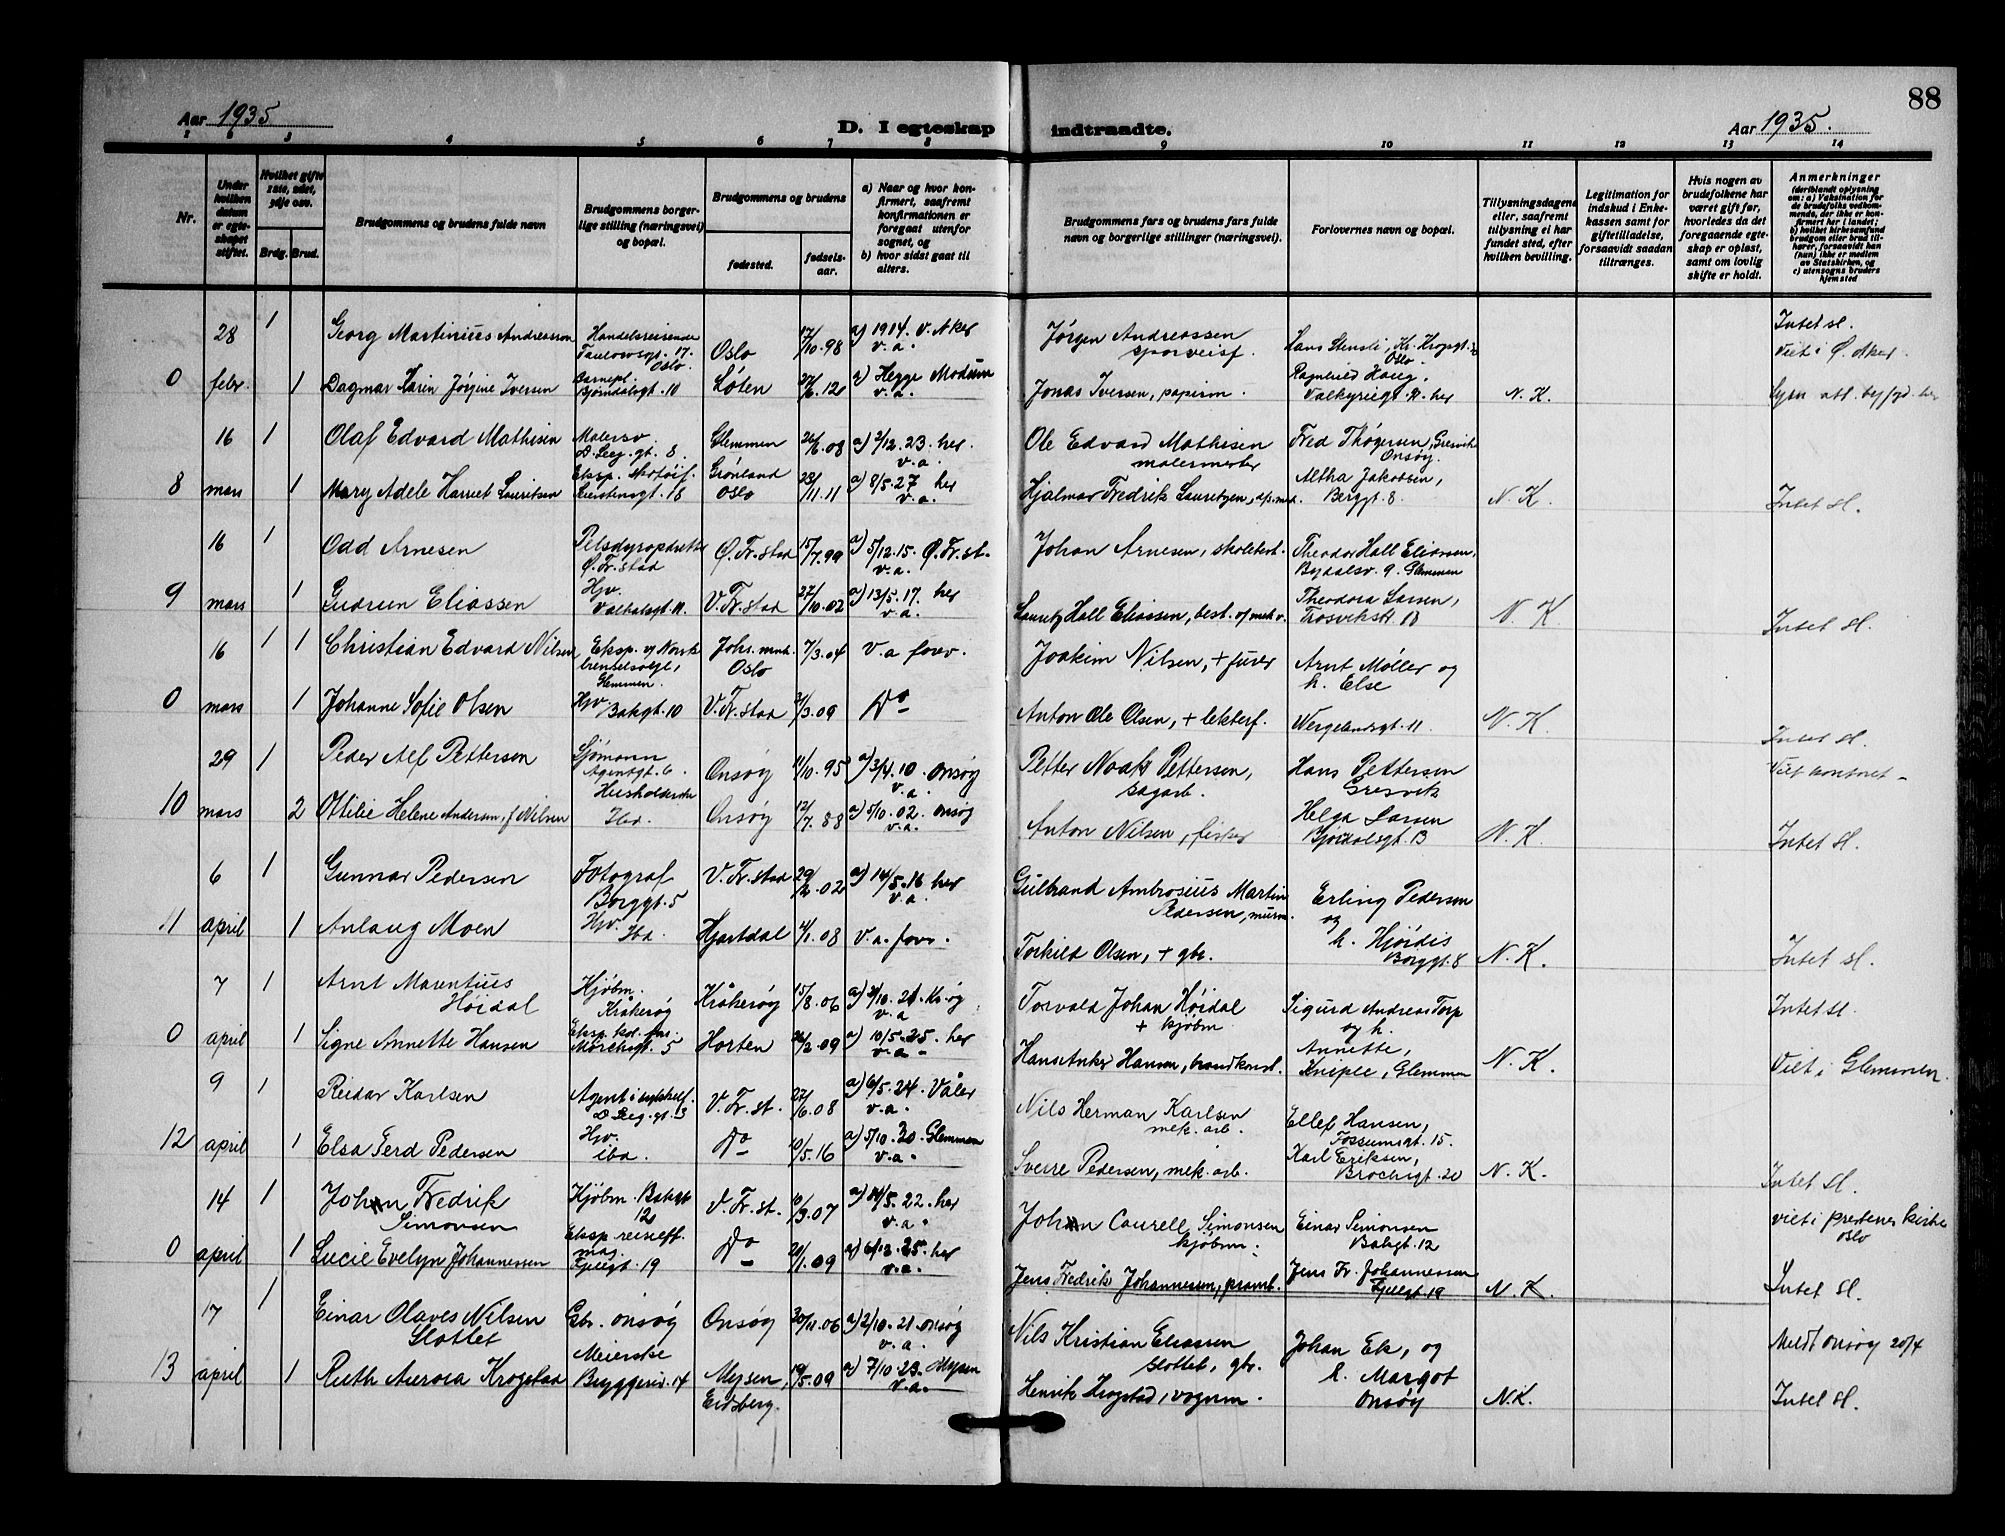 88
Aar 1935
D. I egteskap indtraadte.
Aar 1935.
1 2 3 4 5 6 7 8 9 10 11 12 13 14
Nr.
Under hvilken datum er egteskapet stiftet.
Hvilket gifte 1ste, 2det, 3dje osv.
Brdg. Brud.
Brudgommens og brudens fulde navn
Brudgommens borgerlige stilling (næringsvei) og bopæl.
Brudgommens og brudens
fødested.
fødselsaar.
a) Naar og hvor konfirmert, saafremt konfirmationen er foregaat utenfor sognet, og
b) hvor sidst gaat til alters.
Brudgommens fars og brudens fars fulde navn og borgerlige stillinger (næringsvei).
Forlovernes navn og bopæl.
Tillysningsdagene eller, saafremt tillysning ei har fundet sted, efter hvilken bevilling.
Legitimation for indskud i Enkekassen samt for giftetilladelse, forsaavidt saadan tiltrænges.
Hvis nogen av brudefolkene har været gift før, hvorledes da det foregaaende egteskap er opløst, samt om lovlig skifte er holdt.
Anmerkninger
(deriblandt oplysning om: a) Vaksination for de brudefolks vedkommende, der ikke er konfirmert her i landet; b) hvilket kirkesamfund brudgom eller brud tilhører, forsaavidt han (hun) ikke er medlem av Statskirken, og c) utensogns bruders hjemsted
28 1 Georg Martinius Andreassen Handelsreisende Taulowsgt. 17. Oslo Oslo 17/10.98 a) 1914. V. Aker v.a. Jørgen Andreassen sporveisf. Hans Stensli, Kr. Krogsgt. Oslo Intet sl. Viet i Ø. Aker.
0 febr. 1 Dagmar Karin Jørgine Iversen Barnepl. Bjørndalsgt. 10 Løten 27/6.12 a) Hegge Modum v.a. Jonas Iversen, papirm. Ragnhild Haug, Valkyriegt. 11. her N. K.
16 1 Olaf Edvard Mathisen Malersv. D. Leg. gt. 8. Glemmen 26/6.08 a) 2/12.23. her. v.a. Ole Edvard Mathisen malermester Fred Thøgersen, Gresvik Onsøy.
8 mars 1 Mary Adele Harriet Lauritsen Oslo 28/11.11 a) 8/5.27 her v.a. Hjalmar Fredrik Lauritzen, Altha Jakobsen, Berggt. 8. N. K. Intet sl.
16 1 Odd Arnesen Pelsdyropdretter Ø. Fr. stad Ø. Fr. stad 15/7.99 a) 5/12.15. Ø. Fr. st. v.a. Johan Arnesen, skolebest. Theodor Hall Eliassen, Bydalsv. 9. Glemmen
9 mars 1 Gudrun Eliassen Hjv. Valhalsgt. 11. V. Fr. stad 27/10.02 a) 13/5.17. her v.a. Lauritz Hall Eliassen, best. of mek. v. Theodora Larsen, Trosvikstr. 18 N. K. Intet sl.
16 1 1 Christian Edvard Nilsen Eksp. v/ Norsk brendselsolje, Glemmen. Joh. mnh. Oslo 7/3.04 v.a forv. Joakim Nilsen, + furer Arnt Møller og h. Else
0 mars 1 Johanne Sofie Olsen Hjv. Bakgt. 10 V. Fr. stad /3.09 Do Anton Ole Olsen, + lekterf. Wergelandsgt. 11. N. K. Intet sl.
29 1 Peder Alf Pettersen Sjømann Agentgt. 6 Onsøy 11/10.95 a) 3/4.10 onsøy v.a. Petter Noak Pettersen, sagarb. Hans Pettersen Gresvik Viet kontoret -
10 mars 2 Ottilie Helene Andersen, f Nilsen Husholderske Ibd. Onsøy 12/7.88 a) 5/10.02. onsøy v.a. Anton Nilsen, fisker Helga Larsen Bjørndalsgt. 13 N. K. Intet sl.
6 1 Gunnar Pedersen Fotograf Borggt. 5 V. Fr. stad 29/2.02 a) 14/5.16 her v.a. Gulbrand Ambrosius Martin Pedersen, murm. Erling Pedersen og
11 april 1 Anlaug Moen Hjv. Ibd. Hjartdal 4/1.08 v.a. forv. Torkild Olsen, + gbr. h. Hjørdis Borggt. 8 N. K. Intet sl.
7 1 Arnt Marentius Høidal Kjøbm. Kråkerøy Kråkerøy 15/8.06 a) /10.21. Kr. øy v.a Torvald Johan Høidal + kjøbm. Sigurd Andreas Torp og h. Intet sl.
0 april 1 Signe Annette Hansen Eksp. Mørchsgt. 5 Horten /2.09 a) 10/5.25. her v.a - Hans Anker Hansen, brandkonst. Annette, Kniple, Glemmen N. K. Viet i Glemmen.
9 1 Reidar Karlsen Agent D. Leg. gt. 13 V. Fr. st. 27/6.08 a) 6/5.24. Våler v.a. Nils Herman Karlsen mek. arb. Ellef Hansen, Fossumsgt. 15.
12 april 1 Elsa Gerd Pedersen Hjv. ibd. Do 10/5.16 a) 5/10.30. Glemmen v.a. Sverre Pedersen, mek. arb. Karl Eriksen, Brochsgt. 20 N. K. Intet sl.
14 1 John Fredrik Simonsen Kjøbm. Bakgt 12 V. Fr. st. 10/9.07 a) 14/5.22. her v.a. John Caurell Simonsen kjøbm. Einar Simonsen Bakgt. 12 viet i prestenes kirke Oslo
0 april 1 Lucie Evelyn Johannessen Eksp. mag. Fjeldgt. 19 Do 20/1.09 a) 6/12.25. her v.a. Jens Fredrik Johannesen, Jens Fr. Johannessen Fjeldgt. 19 N. K. Intet sl.
17 1 Einar Olaves Nilsen Slottet Gbr. Onsøy Onsøy 30/11.06 a) 2/10.21. onsøy v.a. Nils Kristian Eliassen slottet, gbr. Johan Ek, og Meldt onsøy 20/4
13 april 1 Ruth Aurora Krogstad Meierske Bryggeriv. 14 Mysen, Eidsberg. 19/5.09 a) 7/10.23. Mysen v.a. Henrik Krogstad, vognm. h. Margot Onsøy N. K. Intet sl.